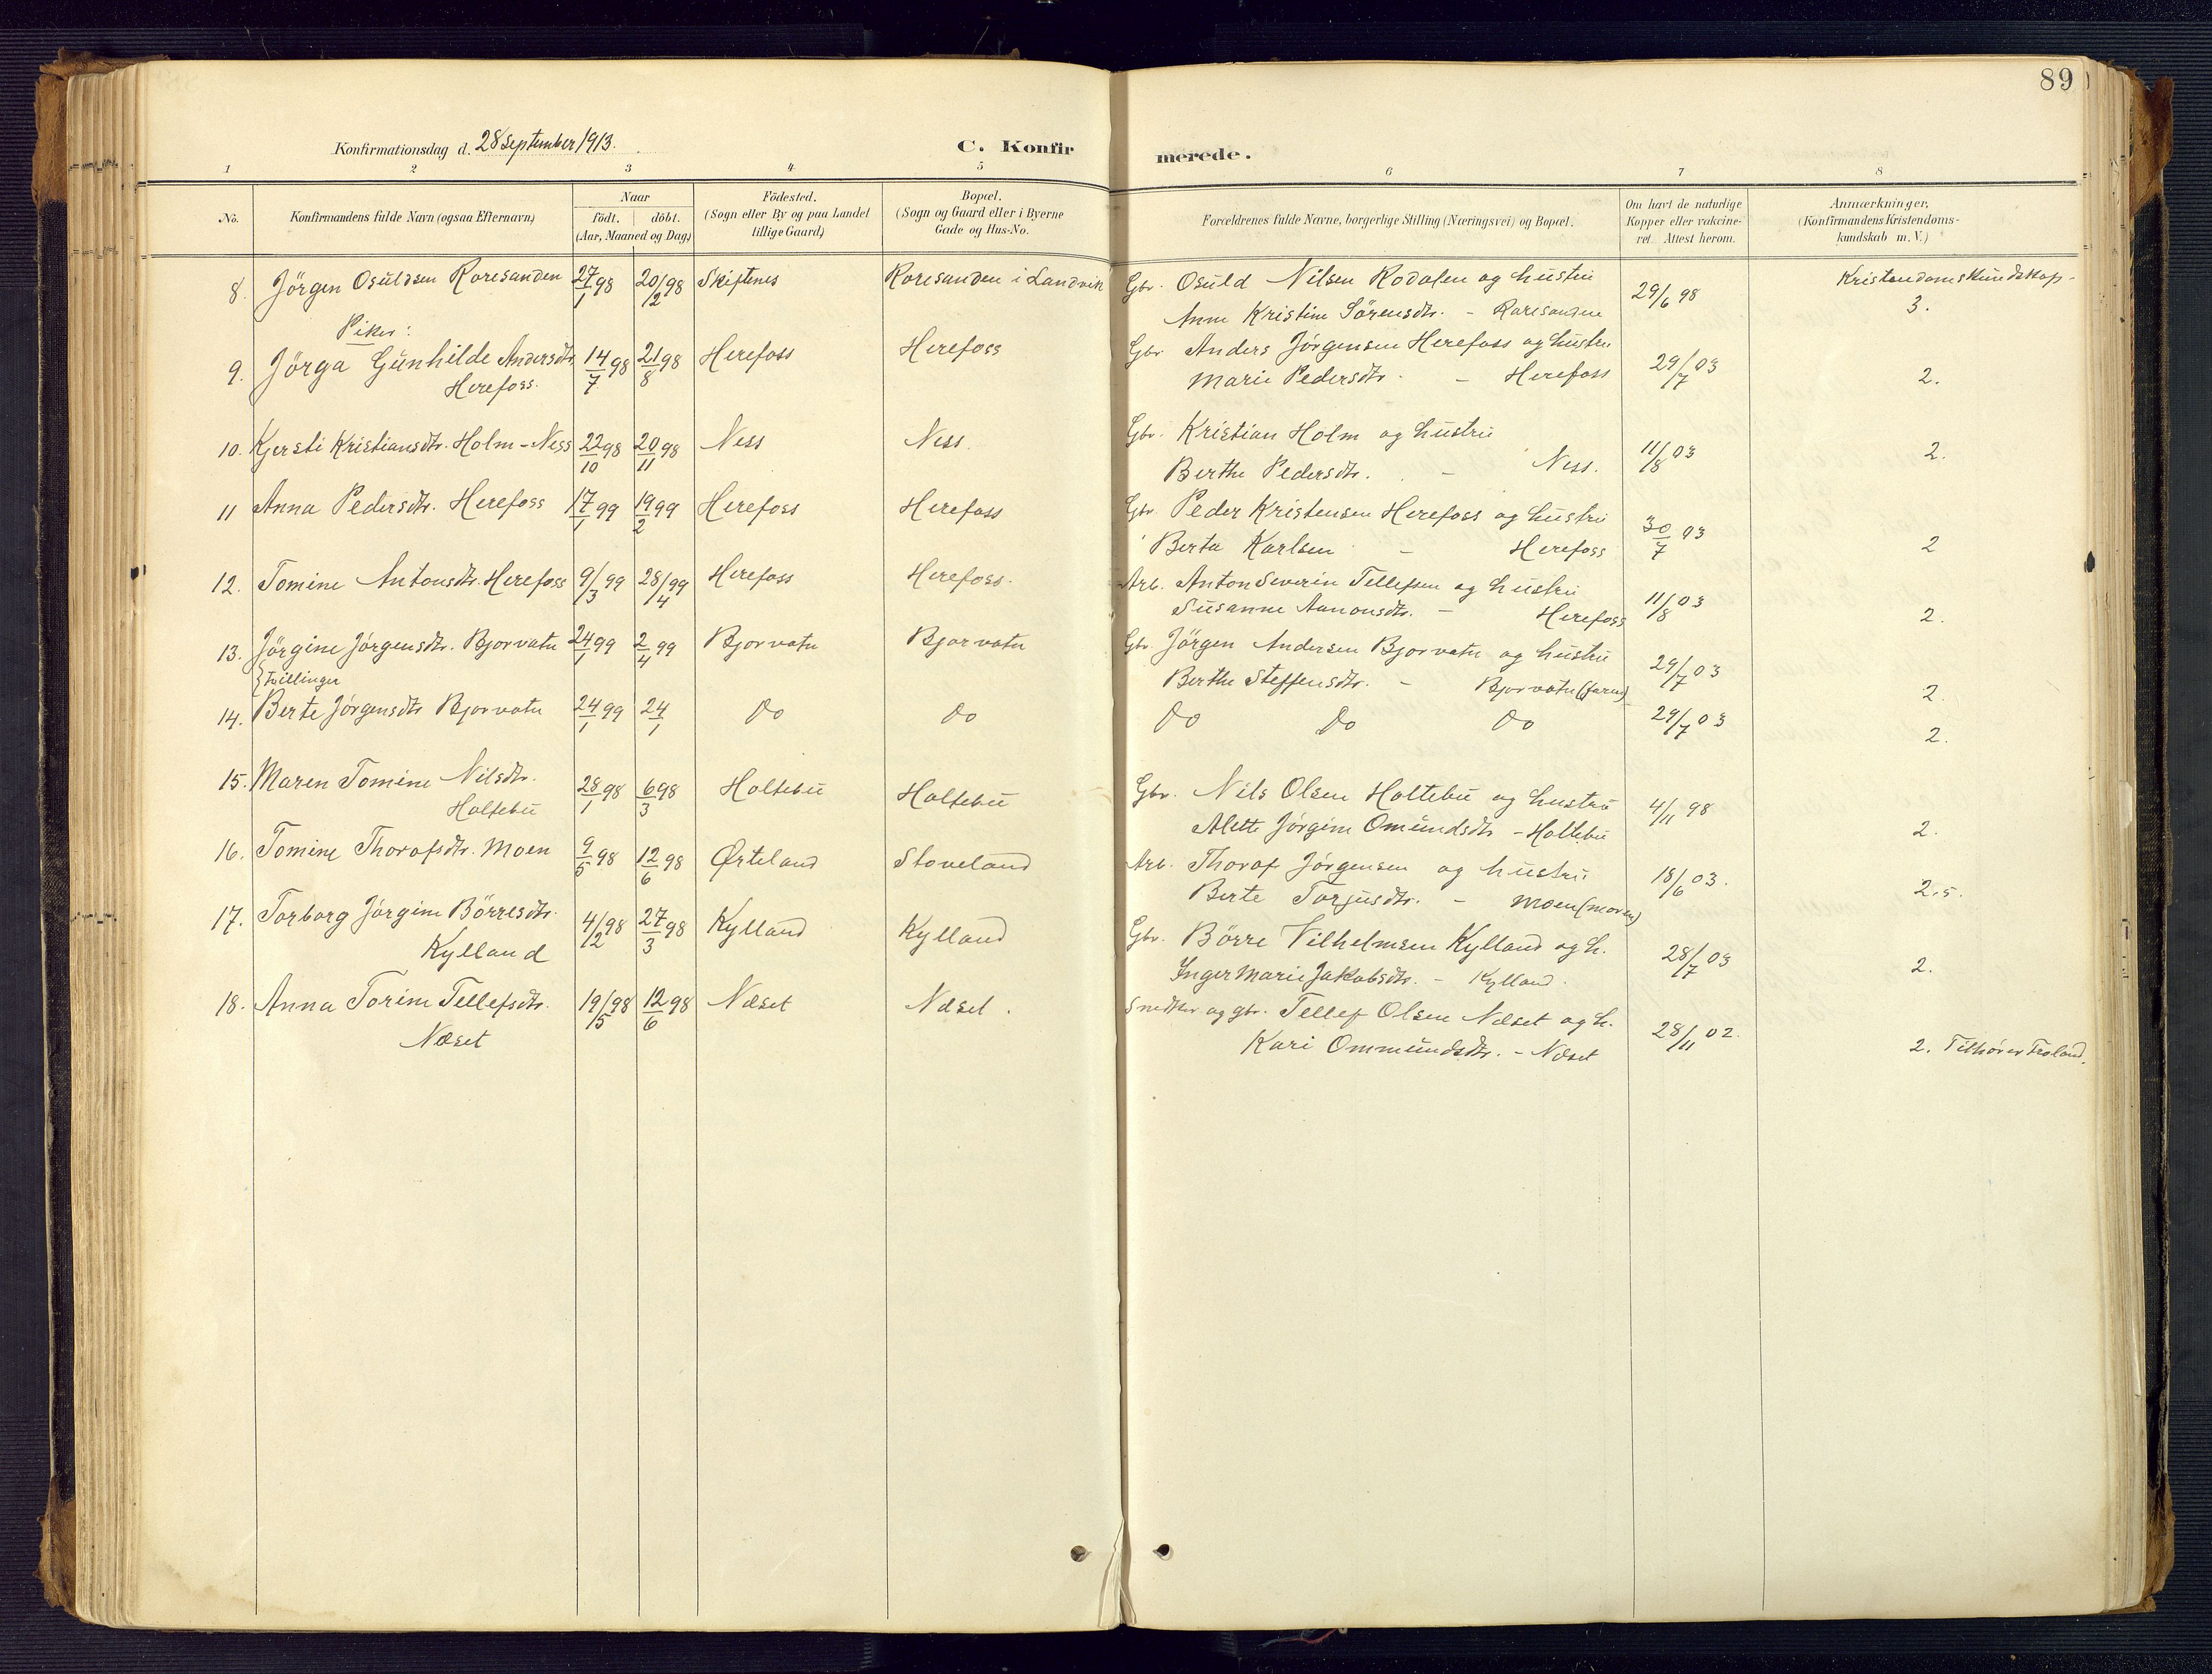 89
Konfirmationsdag d. 28 September 1913.
C. Konfirmerede.
1 2 3 4 5 6 7 8
No. Konfirmandens fulde Navn (ogsaa Efternavn) Naar födt. döbt. (Aar, Maaned og Dag) Födested. (Sogn eller By og paa Landet tillige Gaard) Bopæl. (Sogn og Gaard eller i Byerne Gade og Hus-No. Forældrenes fulde Navne, borgerlige Stilling (Næringsvei) og Bopæl. Om havt de naturlige Kopper eller vakcineret. Attest herom. Anmærkninger, (Konfirmandens Kristendomskundskab m. V.)
8. Jörgen Osuldsen Roresanden 27/1 98 20/2 98 Skiftenes Roresanden i Landvik Gbr. Osuld Nilsen Rodalen og hustru 29/6 98 Kristendomskundskap.
Anne Kristine Sörensdtr. - Roresanden 3.
Piker:
9. Jörga Gunhilde Andersdtr. 14/7 98 21/8 98 Herefoss Herefoss Gbr. Anders Jörgensen Herefoss og hustru 29/7 03
Herefoss. Marie Pedersdtr. - Herefoss 2.
10. Kjersti Kristiansdtr. Holm-Ness 22/10 98 20/11 98 Ness Ness. Gbr. Kristian Holm og hustru 11/8 03 2.
Berthe Pedersdtr. - Ness.
11 Anna Pedersdtr. Herefoss 17/1 99 19/2 99 Herefoss Herefoss Gbr. Peder Kristensen Herefoss og hustru 30/7 03
Berta Karlsen - Herefoss 2
12. Tomine Antonsdtr. Herefoss 9/3 99 28/4 99 Herefoss Herefoss. Arb. Anton Severin Tellefsen og hustru 11/8 03
Susanne Aanonsdtr. - Herefoss 2.
13. Jörgine Jörgensdtr. Bjorvatn 24/1 99 2/4 99 Bjorvatn Bjorvatn Gbr. Jörgen Andersen Bjorvatn og hustru 29/7 03
{tvillinger Berthe Steffensdtr. - Bjorvatn (faren) 2.
14. Berte Jörgensdtr Bjorvatn 24/1 99 24/1 Do Do Do Do Do 29/7 03 2.
15. Maren Tomine Nilsdtr. 28/1 98 6/3 98 Holtebu Holtebu Gbr. Nils Olsen Holtebu og hustru 4/11 98
Holtebu Mette Jörgine Omundsdtr - Holtebu 2.
16. Tomine Thorofsdtr. Moen 9/5 98 12/6 98 Örteland Stoveland Arb. Thorof Jörgensen og hustru 18/6 03.
Berte Torjusdtr. - Moen (moren) 2.5.
17. Torborg Jörgine Börresdtr. 4/12 98 27/3 98 Kylland Kylland Gbr. Börre Vilhelmsen Kylland og h. 28/7 03
Kylland Inger Marie Jakobsdtr. - Kylland. 2.
18. Anna Torine Tellefsdtr. 19/5 98 12/6 98 Næset Næset. Snedker og gbr. Tellef Olsen Næset og h. 28/11 02.
Næset Kari Ommundsdtr. - Næset 2. Tilhörer Froland.